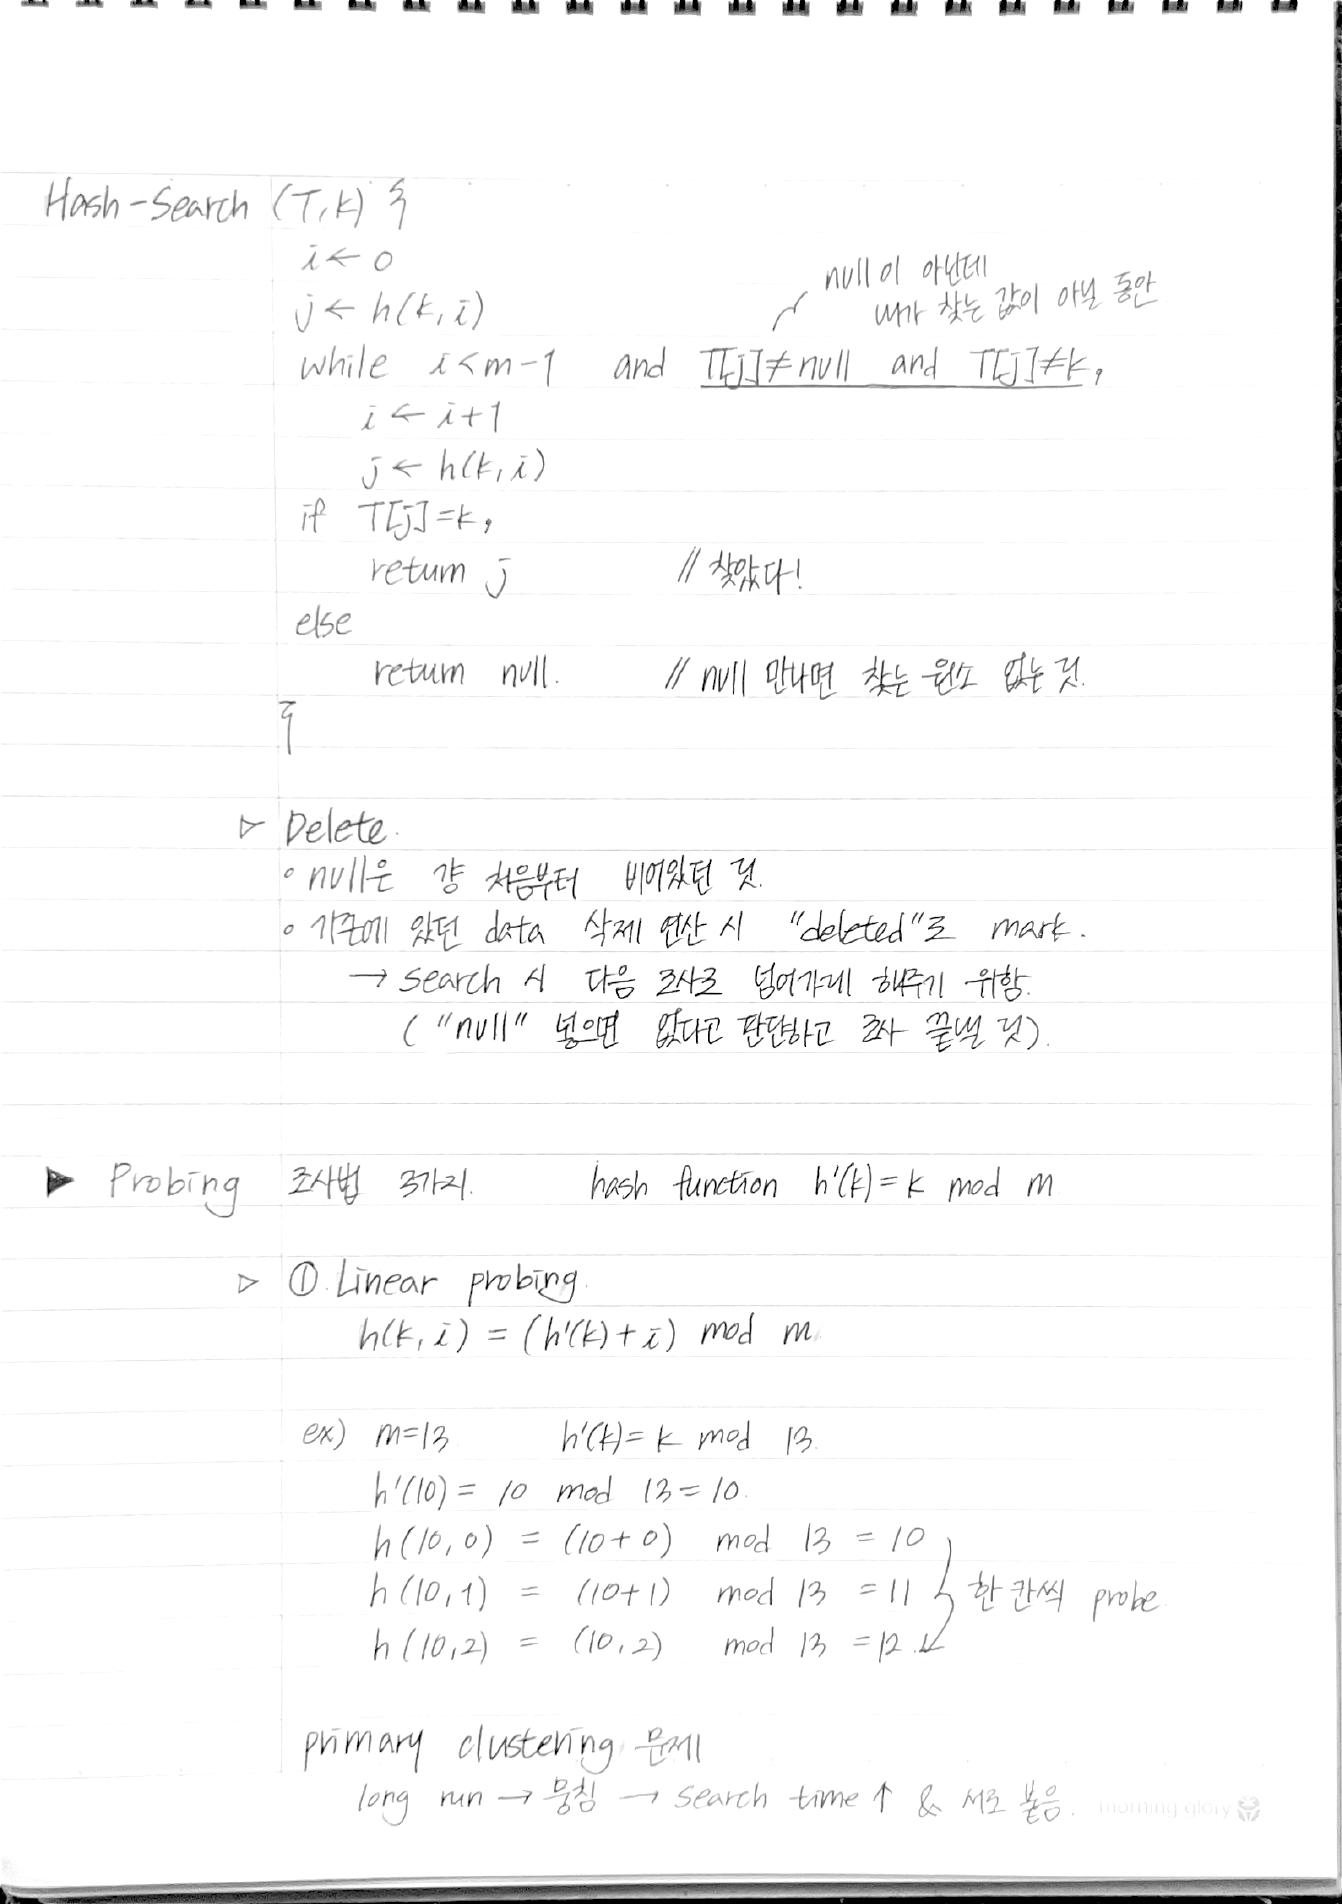 Hash-Search (T,k) {
i ← 0
j ← h(k,i)
null이 아닌데
내가 찾는 값이 아닐 동안
while i<m-1 and T[j]≠null and T[j]≠k,
i ← i+1
j ← h(k,i)
if T[j]=k,
return j // 찾았다!
else
return null. // null 만나면 찾는 원소 없는 것.
}
▷ Delete.
∘ null은 걍 처음부터 비어있던 것.
∘ 기존에 있던 data 삭제 연산 시 "deleted"로 mark.
→ search 시 다음 조사로 넘어가게 해주기 위함.
( "null" 넣으면 없다고 판단하고 조사 끝낼 것).
▶ Probing 조사법 3가지. hash function h'(k)= k mod m
▷ ① Linear probing.
h(k,i) = (h'(k)+i) mod m.
ex) m=13 h'(k)= k mod 13.
h'(10) = 10 mod 13 = 10.
h(10,0) = (10+0) mod 13 = 10
h(10,1) = (10+1) mod 13 = 11 한 칸씩 probe.
h(10,2) = (10,2) mod 13 = 12.
primary clustering 문제
long run → 뭉침 → search time ↑ & 서로 붙음.
morning glory